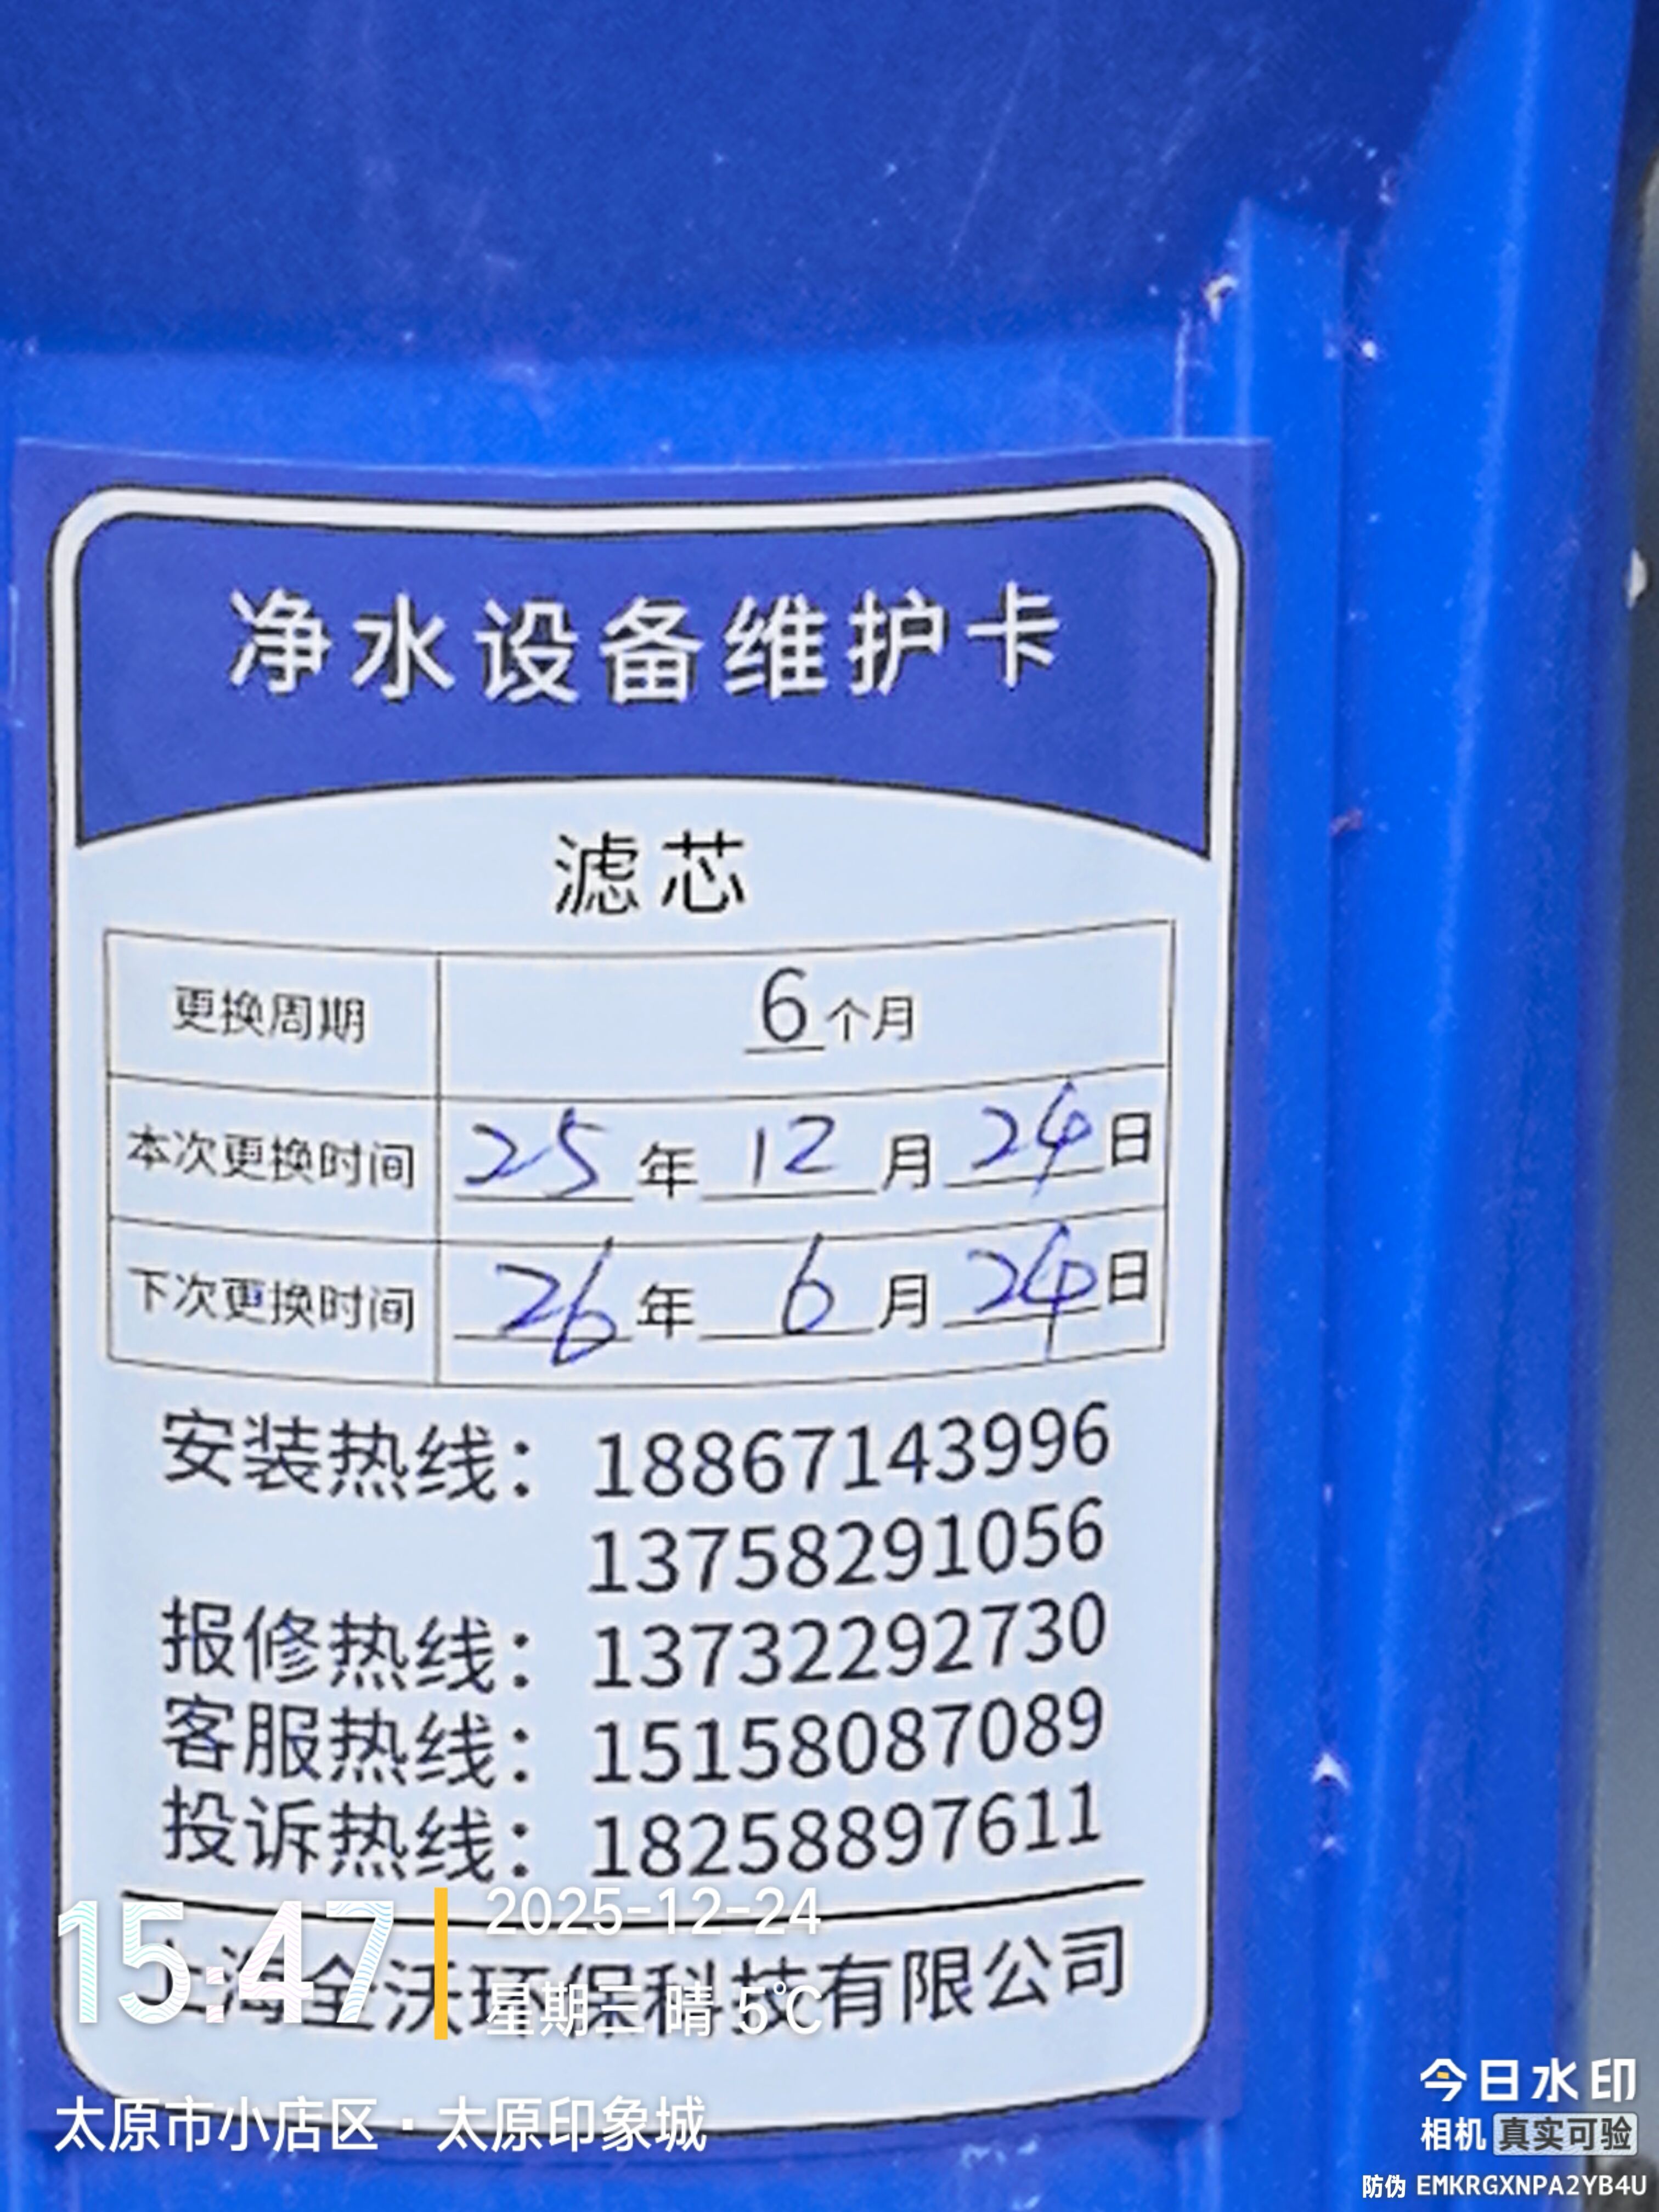 净水设备维护卡
滤芯
更换周期 6个月
本次更换时间 25年12月24日
下次更换时间 26年6月24日
安装热线：18867143996
13758291056
报修热线：13732292730
客服热线：15158087089
投诉热线：18258897611
上海全沃环保科技有限公司
15:47
2025-12-24
星期三 晴 5℃
太原市小店区·太原印象城
今日水印
相机 真实可验
防伪 EMKRGXNPA2YB4U